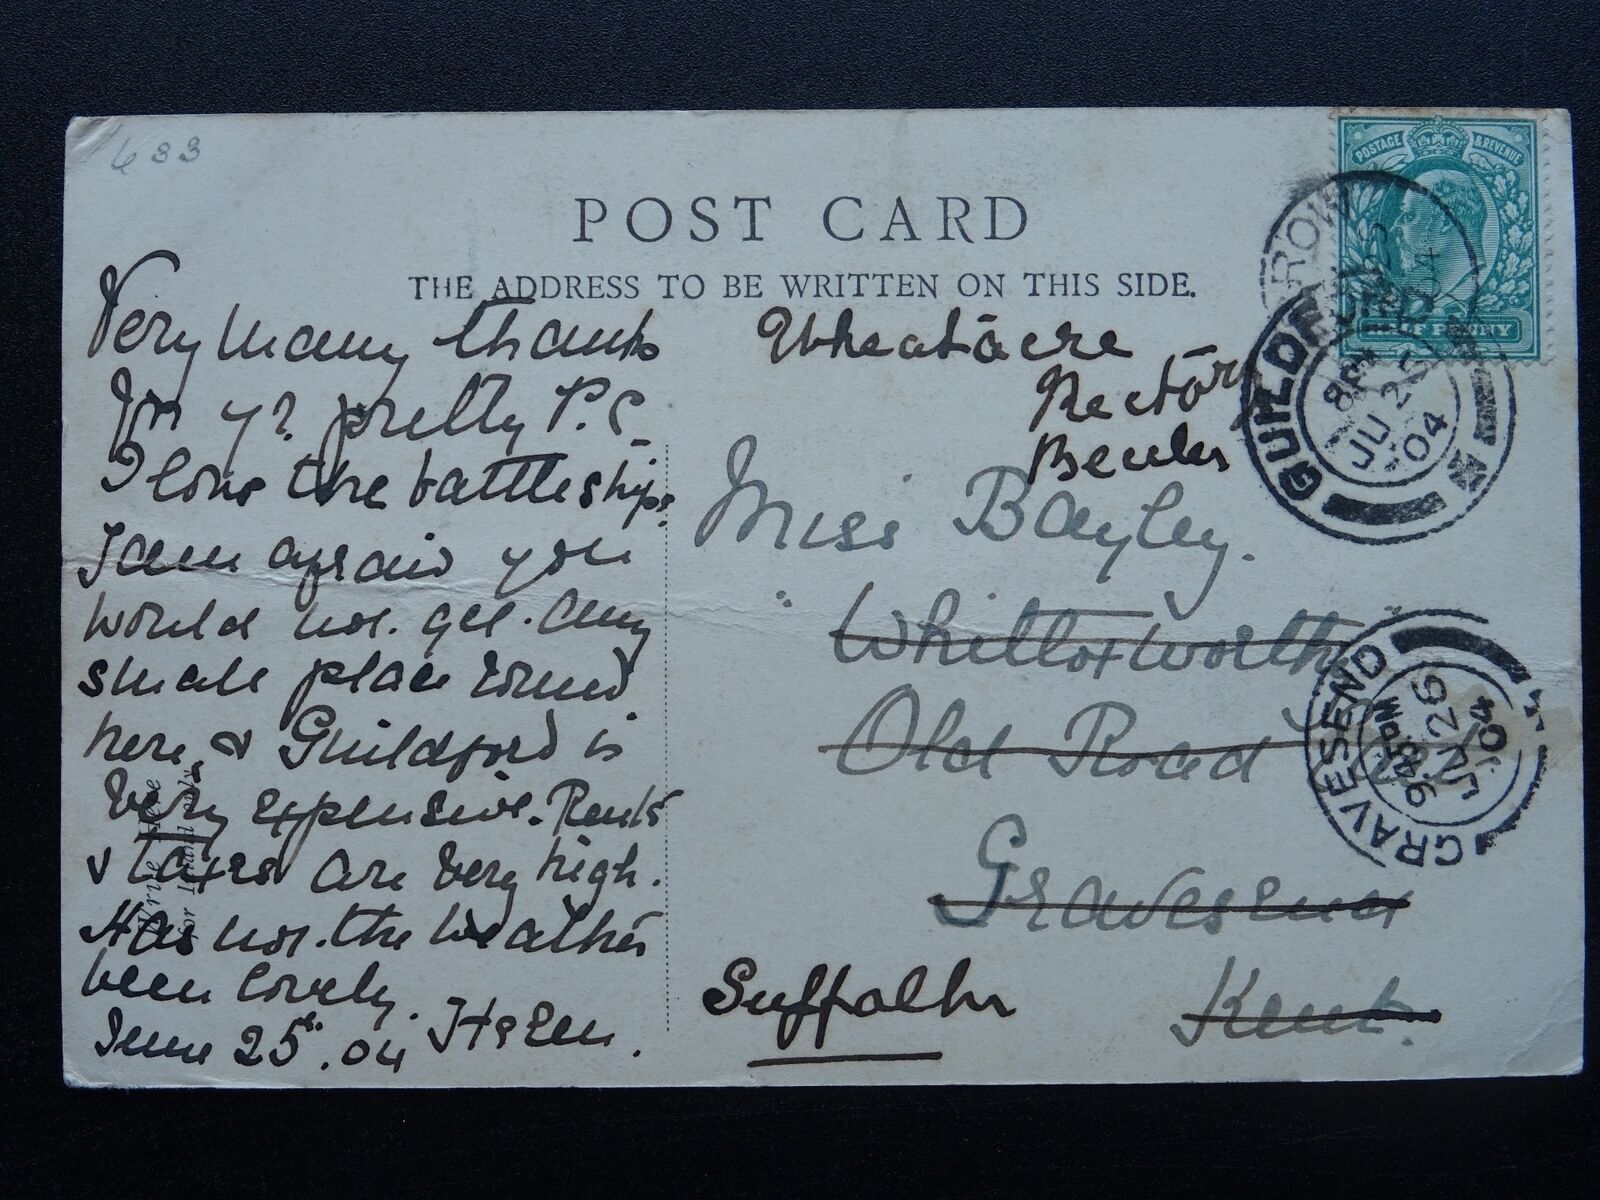 633
POST CARD
THE ADDRESS TO BE WRITTEN ON THIS SIDE.
Very many thanks
for yr. pretty P.C.
I love the battleships.
I am afraid you
would not. get. any
small place round
here, & Guildford is
very expensive. Rents
& taxes are very high.
Has not. the weather
been lovely.
June 25th. 04 Helen.
Write here
for Inland only
Wheatacre
Rectory
Beccles
Miss Bayley.
"Whittoxworth"
Old Road
Gravesend
Kent.
Suffolk
POSTAGE & REVENUE
HALF PENNY
GUILDFORD
8 PM
JU 25
04
GRAVESEND
9 45 PM
JU 26
04